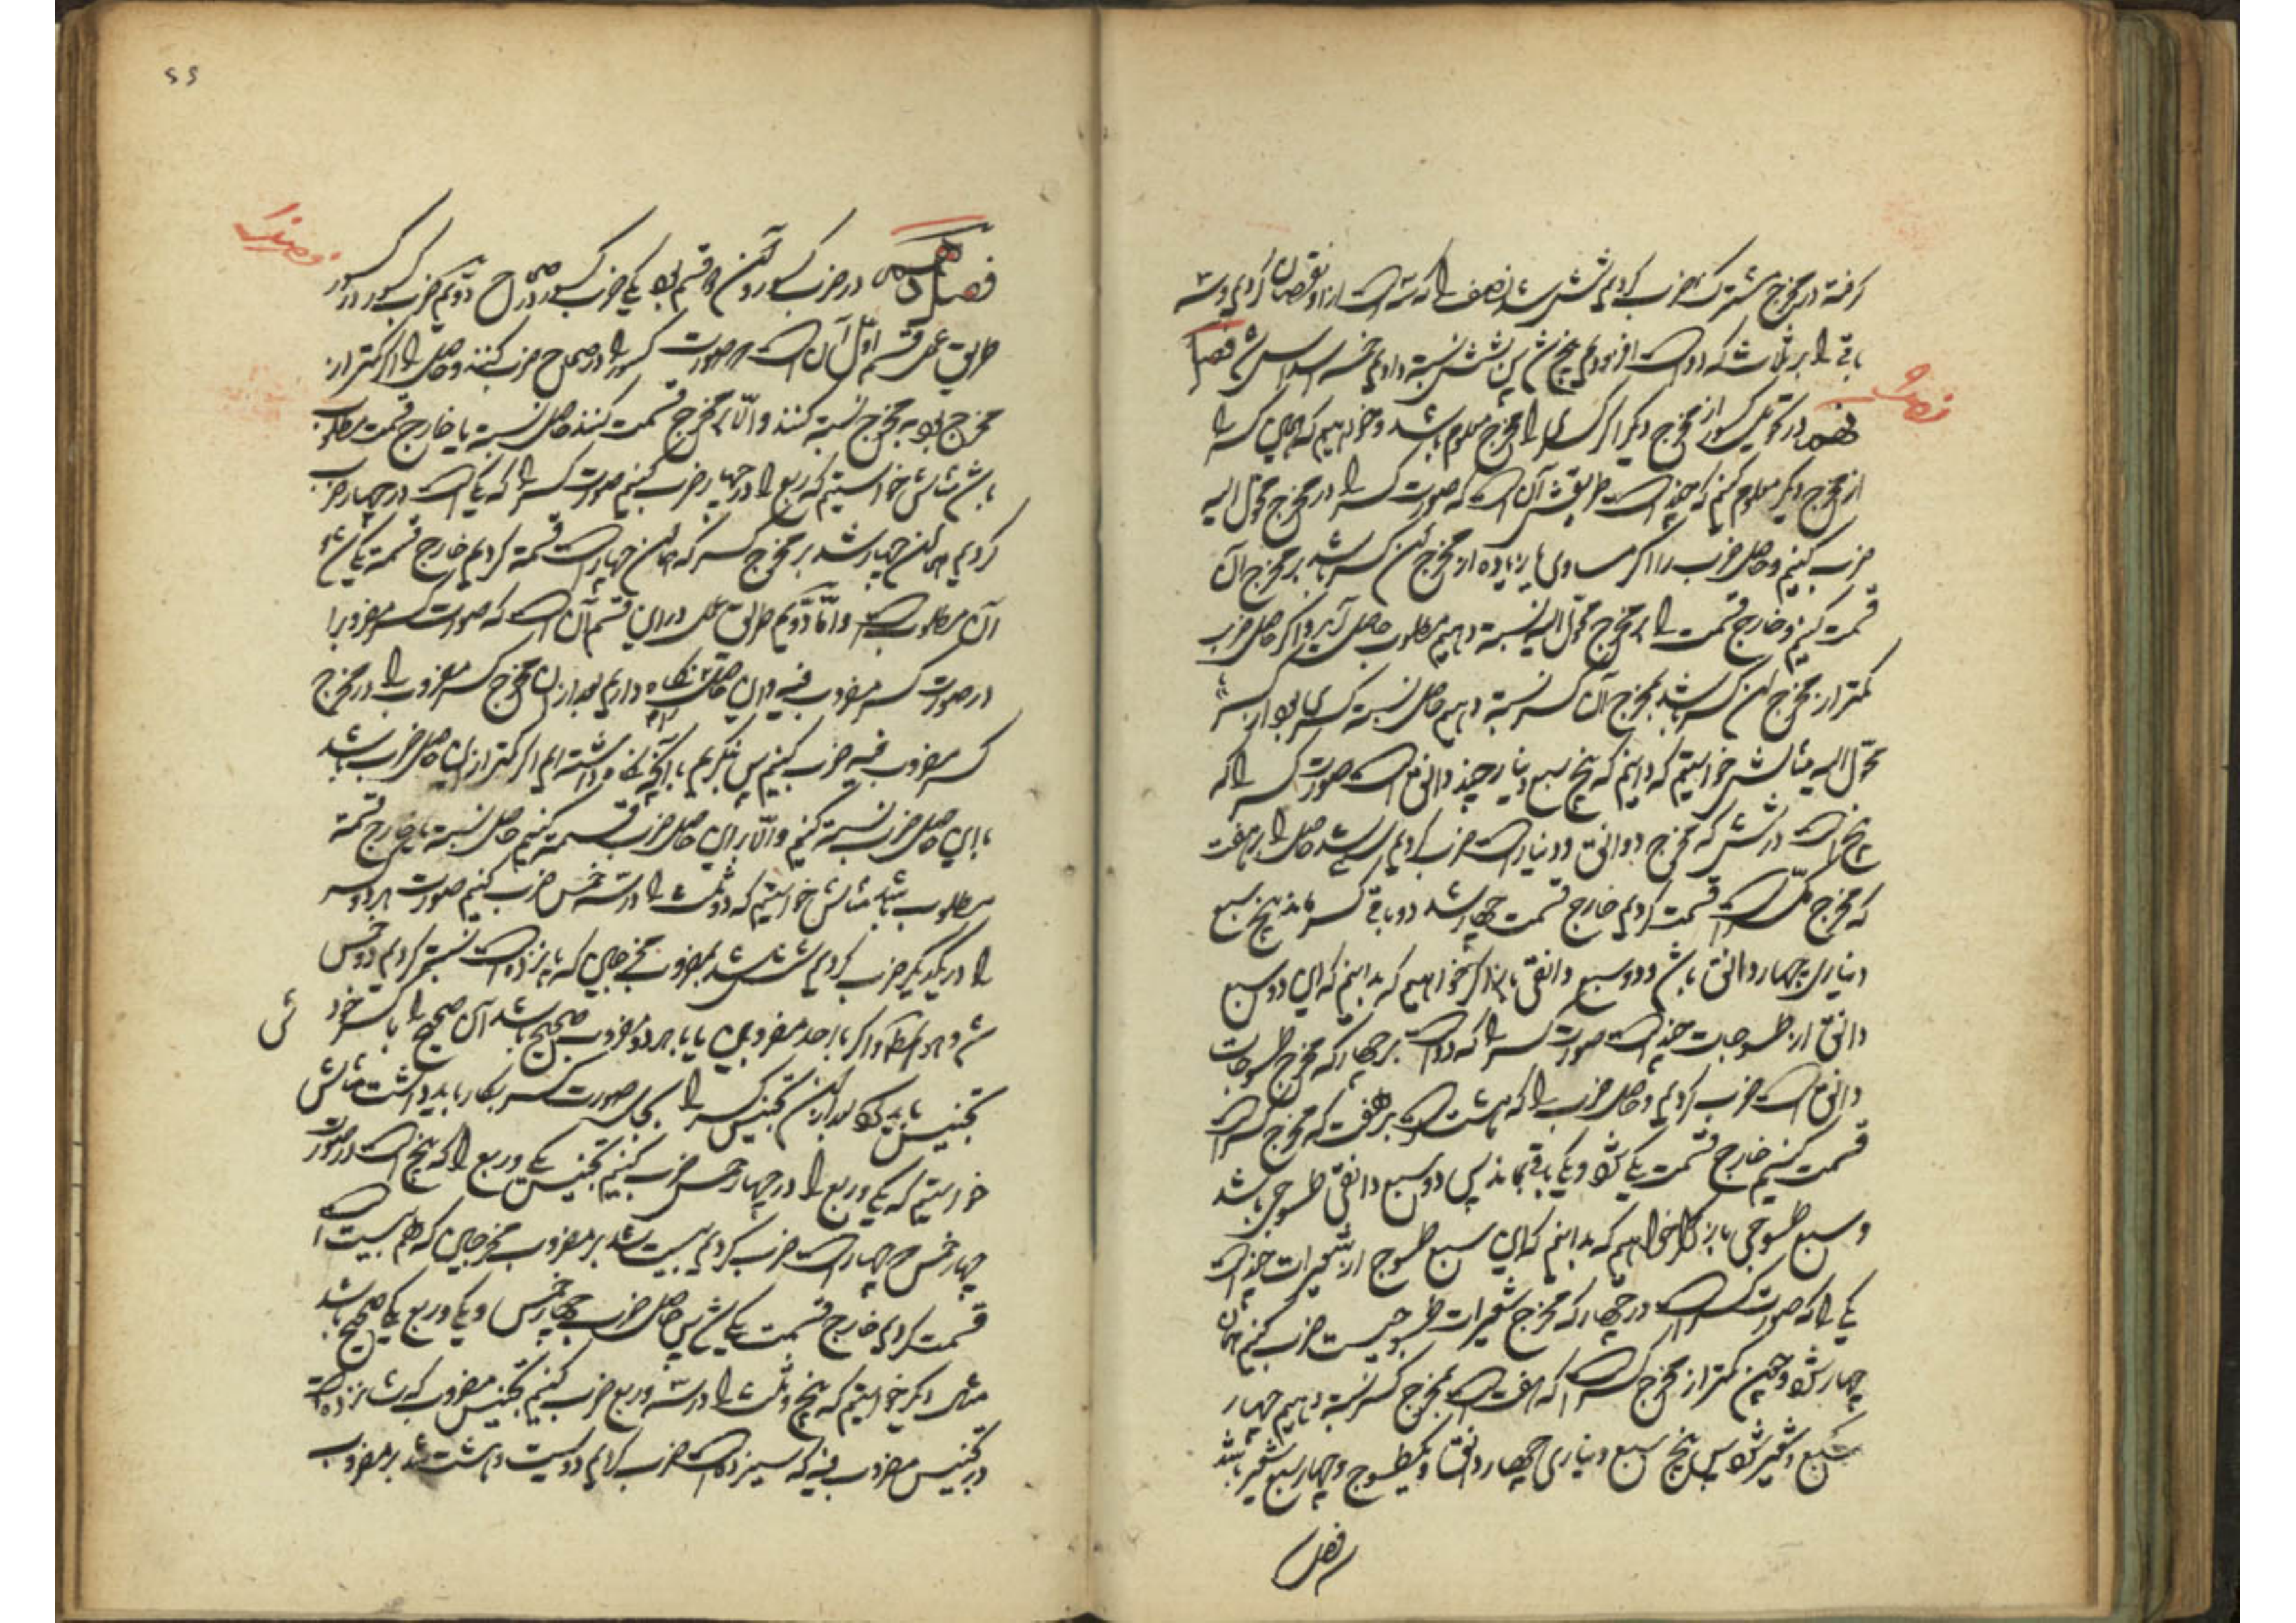 گرفته در مخرج مشترک ضرب کردیم شش شد نصف را که سه است ازو نقصان کردیم و سه
باقی را بر ثلث که دو است افزودیم پنج شد پس بشش نسبة دادیم خمسه اسداس شد فصل
نهم در تحویل کسور از مخرج دیگر اگر کسری را مخرج معلوم باشد و خواهیم که همان کسر را
از مخرج دیگر معلوم کنیم که چند است طریقش آن است که صورت کسر را در مخرج محول الیه
ضرب کنیم و حاصل ضرب را اگر مساوی یا زیاده از مخرج این کسر باشد بر مخرج آن
قسمت کنیم و خارج قسمت را بر مخرج محول الیه نسبة دهیم مطلوب حاصل آید و اگر حاصل ضرب
کمتر از مخرج این کسر باشد بمخرج آن کسر نسبة دهیم حاصل نسبة کسری بود از کسر
محول الیه مثالش خواستیم که دانیم که پنج سبع دینار چند دانق است صورت کسر را که
پنج است در شش که مخرج دوانق و دینار است ضرب کردیم سی شد حاصل را بر هفت
که مخرج کسر است قسمت کردیم خارج قسمت چهار شد دو باقی کسر ماند پنج سبع
دیناری چهار دانق باشد و دو سبع دانقی باز اگر خواهیم که بدانیم که این دو سبع
دانق از طسوجات چند است صورت کسر را که دو است بر چهار که مخرج طسوجات
دانق است ضرب کردیم و حاصل ضرب را که هشت است بر هفت که مخرج کسر است
قسمت کنیم خارج قسمت یکی شود و یکی باقیماند پس دو سبع دانقی طسوجی باشد
و سبع طسوجی باز اگر خواهیم که بدانیم که این سبع طسوج از شعیرات چند است
یکی را که صورت کسر است در چهار که مخرج شعیرات طسوجیست ضرب کنیم همان
چهار شود و چون کمتر از مخرج کسر است که هفت است بمخرج کسر نسبة دهیم چهار
سبع شعیر شود پس پنج سبع دیناری چهار دانق و یکطسوج و چهار سبع شعیر باشد
فصل
فصل دهم در ضرب کسور و آن دو قسم بود یکی ضرب کسور در صحاح دویم ضرب کسور در کسور
طریق عمل قسم اول آن است که صورت کسور را در صحاح ضرب کنند و حاصل را اگر کمتر از
مخرج بود به مخرج نسبة کنند و الا بر مخرج قسمت کنند حاصل نسبة یا خارج قسمت مطلوب
باشد مثالش خواستیم که ربع را در چهار ضرب کنیم صورت کسر را که یک است در چهار ضرب
کردیم همان چهار شد بر مخرج کسر که همان چهار است قسمة کردیم خارج قسمة یکی شد و
آن مطلوب است و اما دویم طریق عمل در این قسم آن است که صورت کسر مضروب را
در صورت کسر مضروب فیه و این حاصل را نگاه داریم بعد از آن مخرج کسر مضروب را در مخرج
کسر مضروب فیه ضرب کنیم پس بنگریم با آنچه نگاه داشته ایم اگر کمتر از این حاصل ضرب باشد
باین حاصل ضرب نسبة کنیم و الا بر این حاصل ضرب قسمة کنیم حاصل نسبة یا خارج قسمة
مطلوب باشد مثالش خواستیم که دو ثلث را در سه خمس ضرب کنیم صورت هر دو کسر
را در یکدیگر ضرب کردیم شش شد بمضروب مخرجین که پانزده است نسبة کردیم دو خمس
شد و هو المط و اگر با احد مضروبین یا با هر دو مضروب صحیح باشد آن صحیح را با کسر خود
تجنیس باید کرد بعد از آن تجنیس کسر را بجای صورت کسر بکار باید داشت مثالش
خواستیم که یکی و ربع را در چهار خمس ضرب کنیم تجنیس یکی و ربع را که پنج است در صورت
چهار خمس که چهار است ضرب کردیم بیست شد بر مضروب مخرجین که هم بیست است
قسمت کردیم خارج قسمت یکی شد پس حاصل ضرب چهار خمس و یکی و ربع یکی صحیح باشد
مثال دیگر خواستیم که پنج و ثلث را در سه و ربع ضرب کنیم تجنیس مضروب که شانزده است
در تجنیس مضروب فیه که سیزده است ضرب کردیم دویست و هشت شد بر مضروب